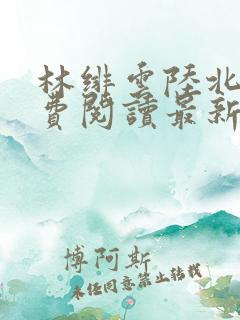 林绯雲陸北
費閱讀最新
博阿斯
未经同意禁止转载